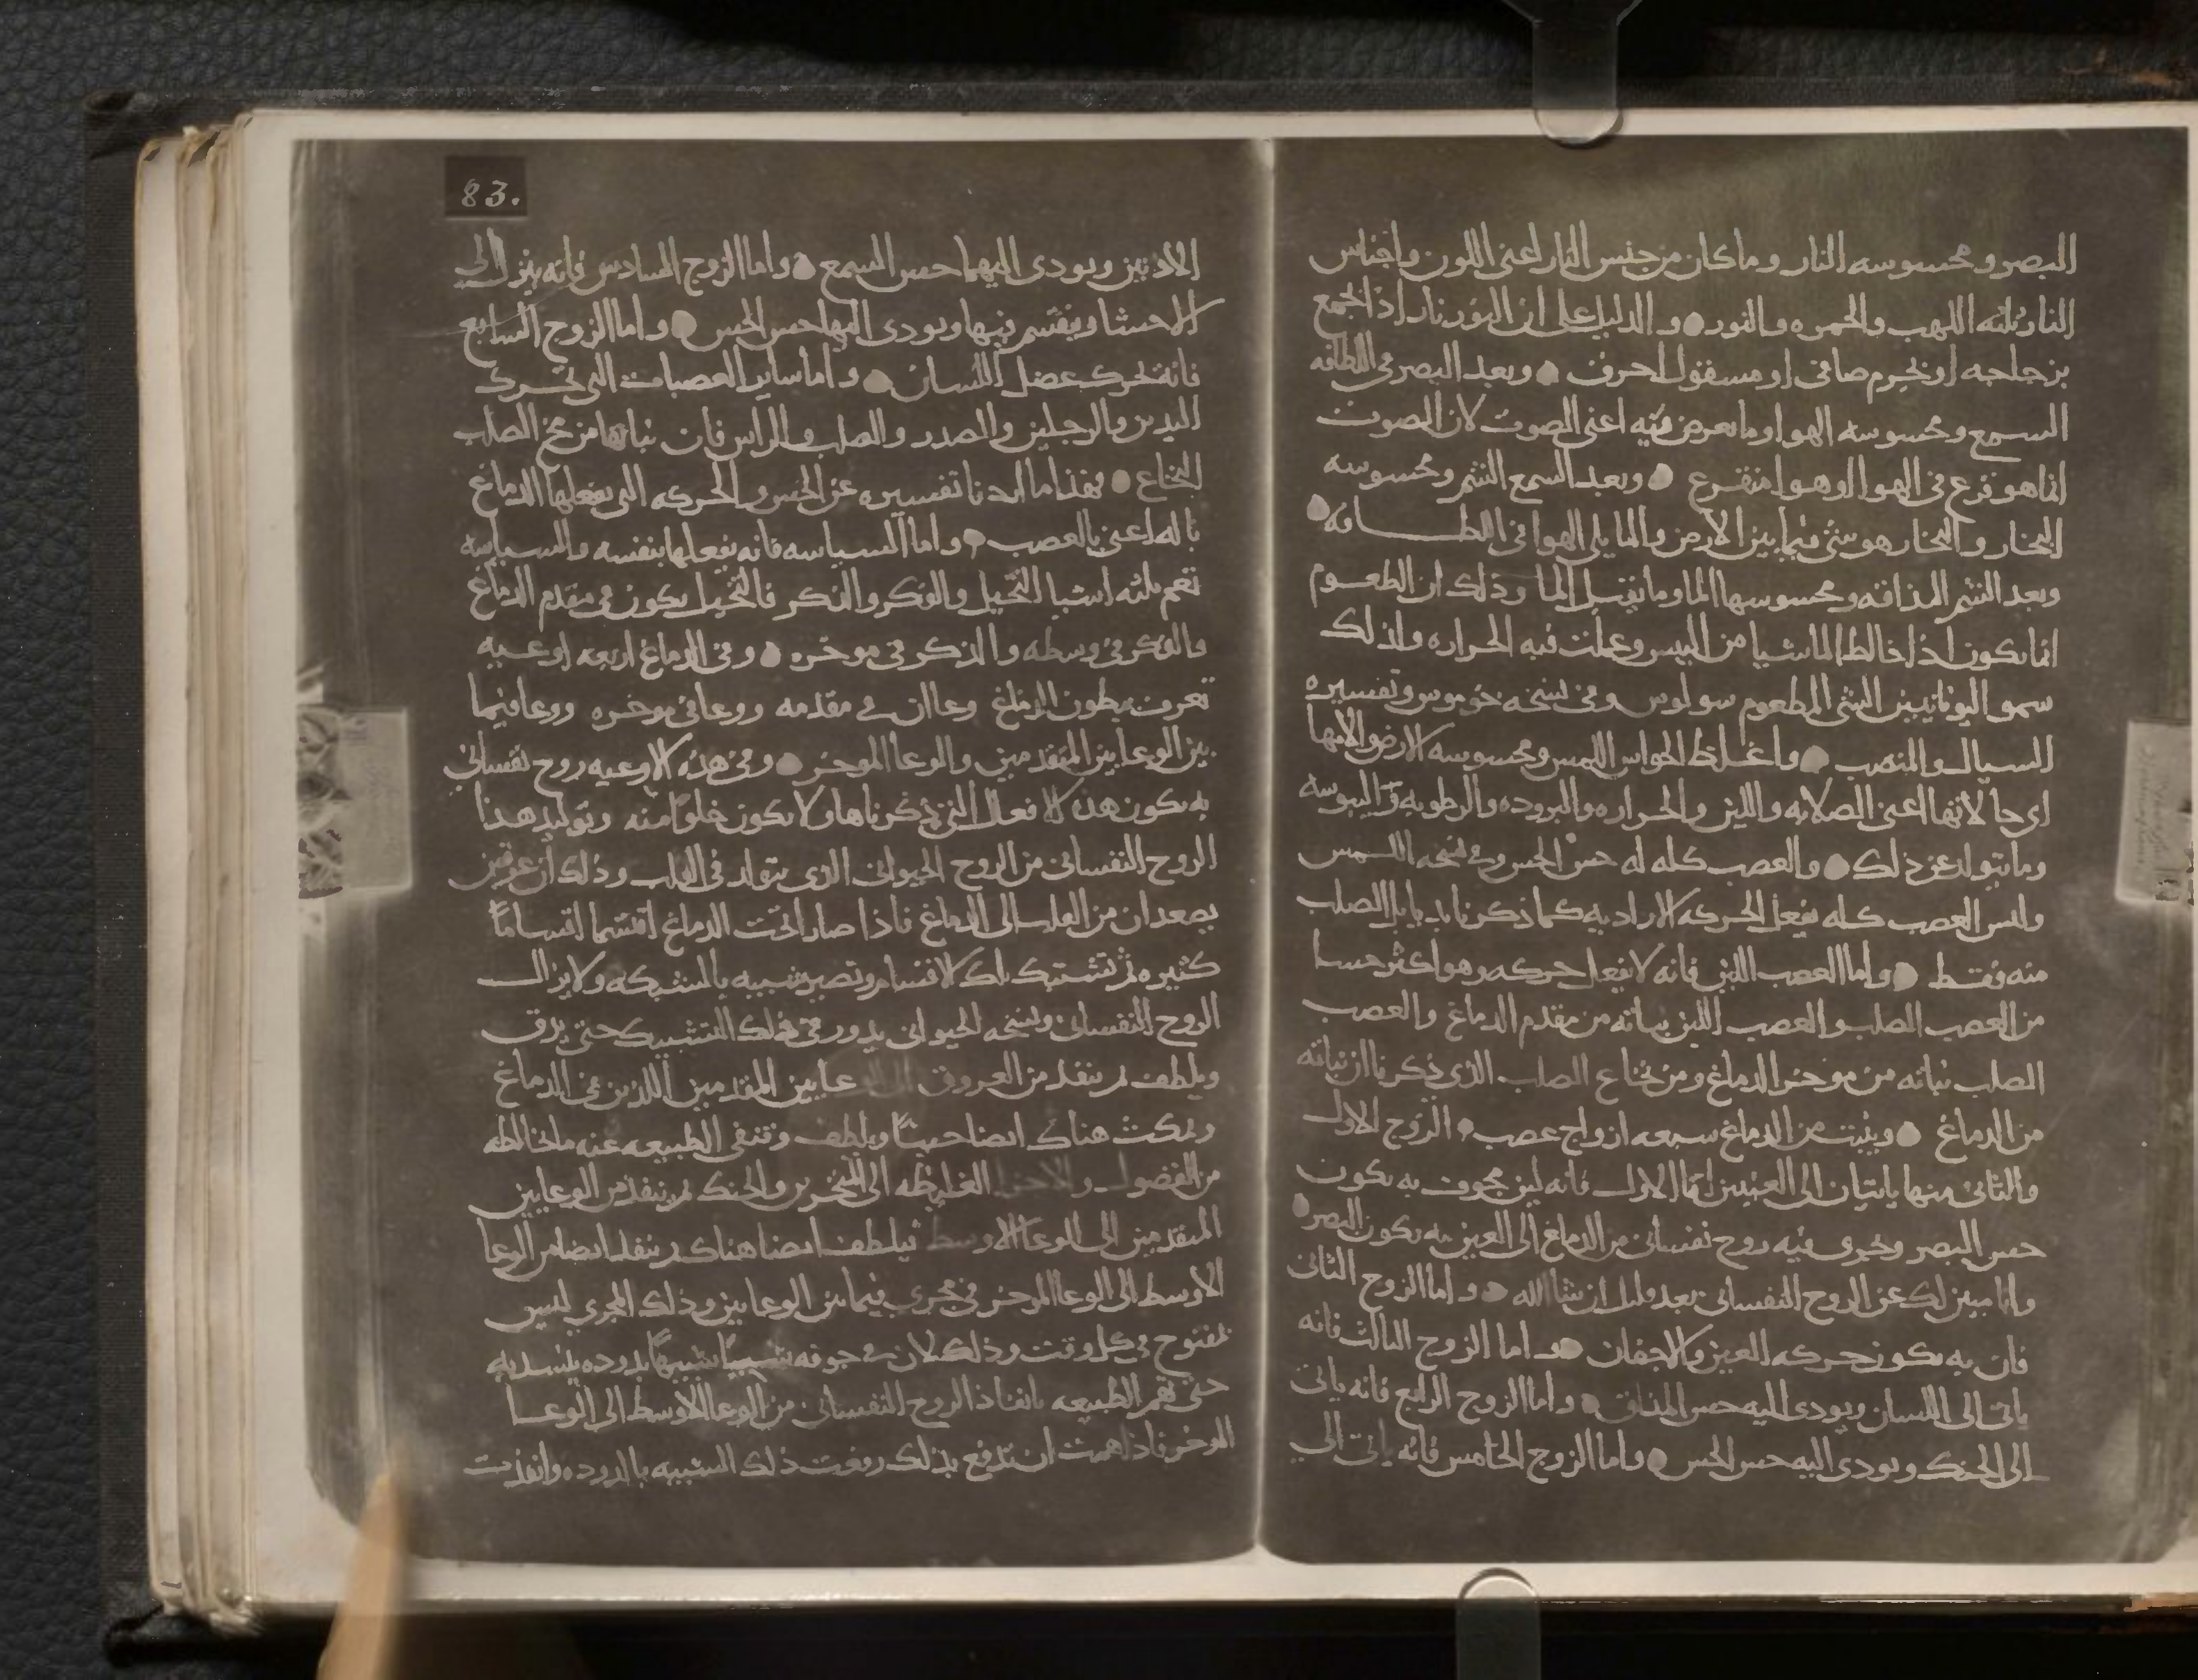 البصر ومحسوسه النار وما كان من جنس النار اعنى اللون واجناس
النار ثلثه اللهب والجمره والنور ● والدليل على ان النور نار اذا جمع
بزجاجه او بجرم صافى او مسقول احرق ● وبعد البصر فى اللطافه
السمع ومحسوسه الهوا وما يعرض فيه اعنى الصوت لان الصوت
انما هو قرع فى الهوا او هوا منقرع ● وبعد السمع الشم ومحسوسه
البخار والبخار هو شى فيما بين الارض والما يلى الهوا فى اللطافه ●
وبعد الشم المذاقه ومحسوسها الما وما يقبل الما وذلك ان الطعوم
انما تكون اذا خالط الما شيا من اليبس وعملت فيه الحراره ولذلك
سمو اليونانيين الشى المطعوم سولوس وفى نسخه خوموس وتفسيره
السيال والمنصب ● واغلظ الحواس اللمس ومحسوسه الارض لانها
اعنى الصلابه واللين والحراره والبروده والرطوبه واليبوسه
وما يتولد عن ذلك ● والعصب كله له حس الحس وفى نسخه اللمس
وليس العصب كله يفعل الحركه الاراديه كما ذكرنا الصلب
منه فقط ● واما العصب اللين فانه لا يفعل حركه وهو اكثر حسا
من العصب الصلب والعصب اللين نباته من مقدم الدماغ والعصب
الصلب نباته من موخر الدماغ ومن نخاع الصلب الذى ذكرنا ان نباته
من الدماغ ● وينبت من الدماغ سبعه ازواج عصب ● الزوج الاول
والثانى منها ياتيان الى العينين اما الاول فانه لين مجوف به يكون
حس البصر ويجرى فيه روح نفسانى من الدماغ الى العين به يكون البصر ●
وانا مبين لك عن الروح النفسانى بعد قليل ان شا الله ● واما الزوج الثانى
فان به يكون حركه العين والاجفان ● واما الزوج الثالث فانه
ياتى الى اللسان ويودى اليه حس المذاق ● واما الزوج الرابع فانه ياتى
الى الحنك ويودى اليه حس الحس ● واما الزوج الخامس فانه ياتى الى
83.
الاذنين ويودى اليهما حس السمع ● واما الزوج السادس فانه ينزل الى
الاحشا وينقسم فيها ويودى اليها حس الحس ● واما الزوج السابع
فانه يحرك عضل اللسان ● واما ساير العصبات التى تحرك
اليدين والرجلين والصدر والصلب والراس فان نباتها من مخ الصلب
النخاع ● فهذا ما اردنا تفسيره عن الحس والحركه التى يفعلها الدماغ
باله اعنى بالعصب ● واما السياسه فانه يفعلها بنفسه والسياسه
تعم ثلثه اشيا التخيل والفكر والذكر فالتخيل يكون فى مقدم الدماغ
والفكر فى وسطه والذكر فى موخره ● وفى الدماغ اربعه اوعيه
تعرف ببطون الدماغ وعاان فى مقدمه ووعا فى موخره ووعا فيما
بين الوعايين المتقدمين والوعا الموخر ● وفى هذه الاوعيه روح نفسانى
به يكون هذه الافعال التى ذكرناها ولا تكون خلوا منه وتوليد هذا
الروح النفسانى من الروح الحيوانى الذى يتولد فى القلب وذلك ان عرقين
يصعدان من القلب الى الدماغ فاذا صارا تحت الدماغ اقتسما اقتساما
كثيره ثم تشتبك تلك الاقسام وتصير شبيه بالشبكه ولا يزال
الروح النفسانى ونسخه الحيوانى يدور فى ذلك التشبيك حتى يرق
ويلطف ثم ينفذ من العروق الى الوعايين المقدمين اللذين فى الدماغ
ويمكث هناك ايضا حينا ويلطف وتنفى الطبيعه عنه ما خالطه
من الفضول والاجزا الغليظه الى المنخرين والحنك ثم ينفذ من الوعايين
المتقدمين الى الوعا الاوسط فيلطف ايضا هناك ثم ينفذ ايضا من الوعا
الاوسط الى الوعا الموخر فى مجرى فيما بين الوعايين وذلك المجرى ليس
بمفتوح فى كل وقت وذلك لان فى جوفه شبيها بدوده ينسد به
حتى تهم الطبيعه بانفاذ الروح النفسانى من الوعا الاوسط الى الوعا
الموخر فاذا همت ان تدفع بذلك رفعت ذلك الشبيه بالدوده وانفذت